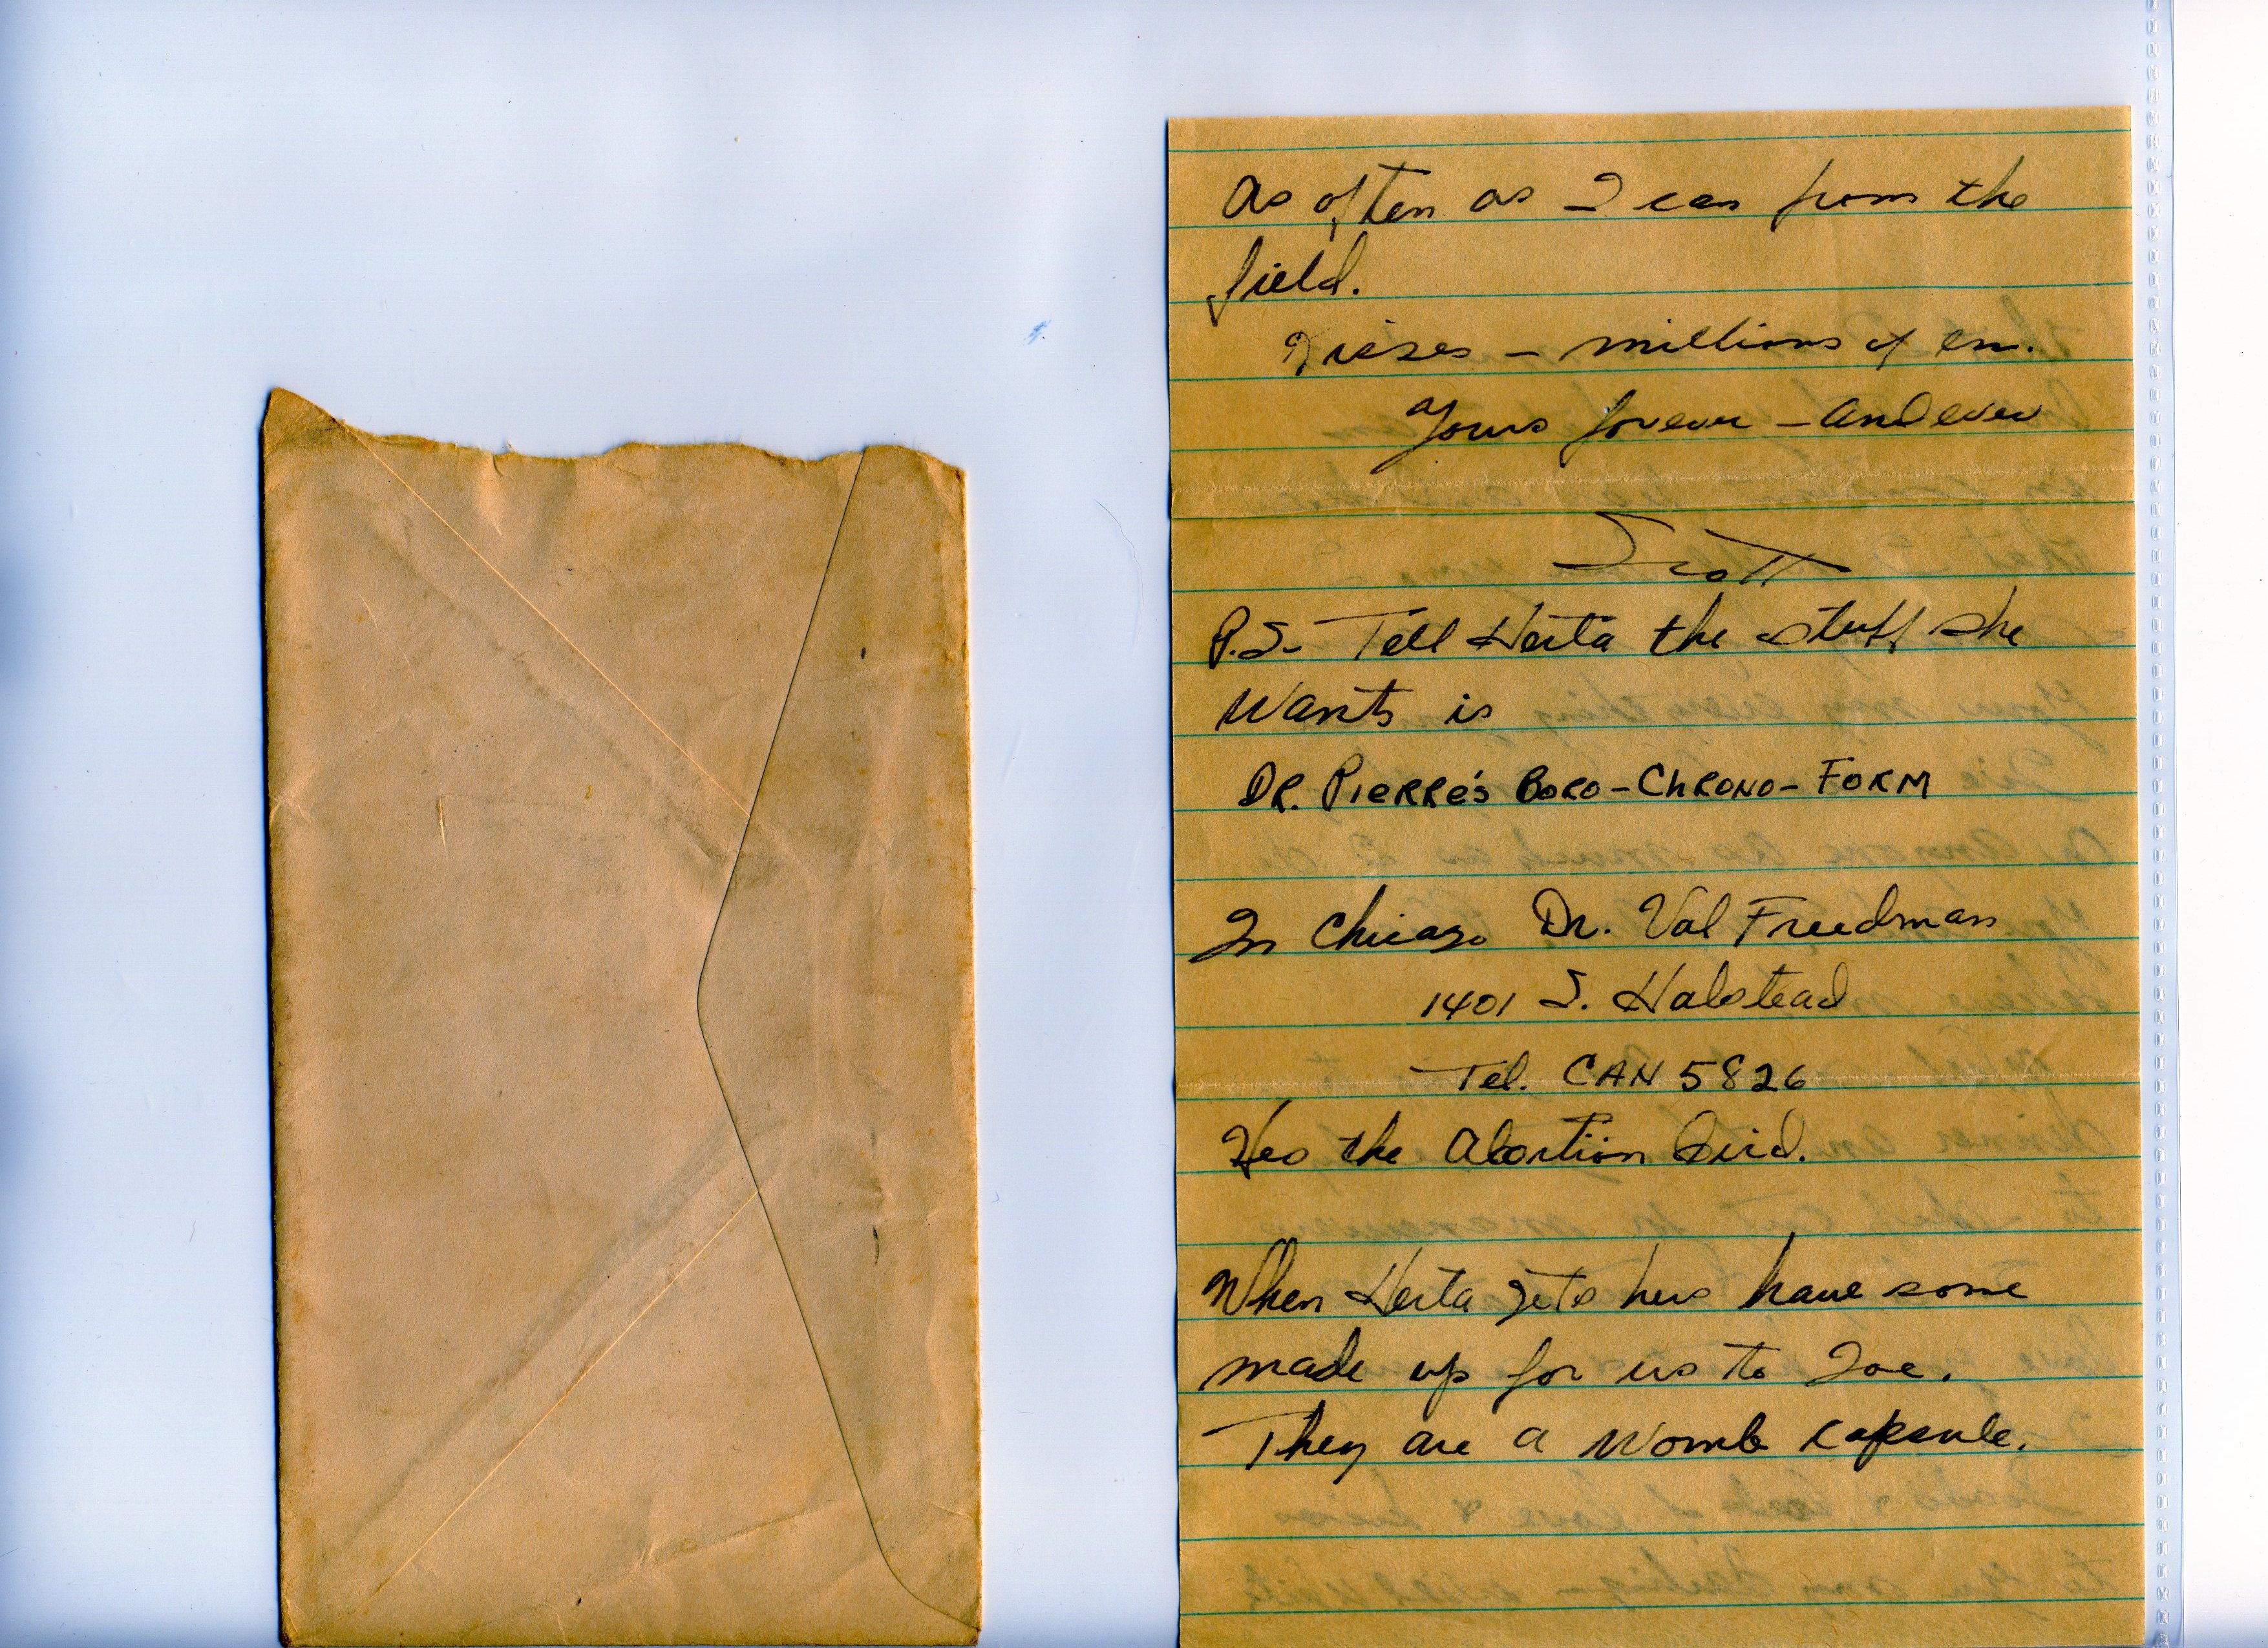 as often as I can from the
field.
Kisses - millions of em.
Yours forever - and ever
Scott
P.S- Tell Herta the stuff she
wants is
DR. PIERRE'S BORO-CHRONO-FORM
In Chicago Dr. Val Freedman
1401 S. Halstead
Tel. CAN 5826
Hes the Abortion bird.
When Herta gets hers have some
made up for us to Joe.
They are a womb capsule.